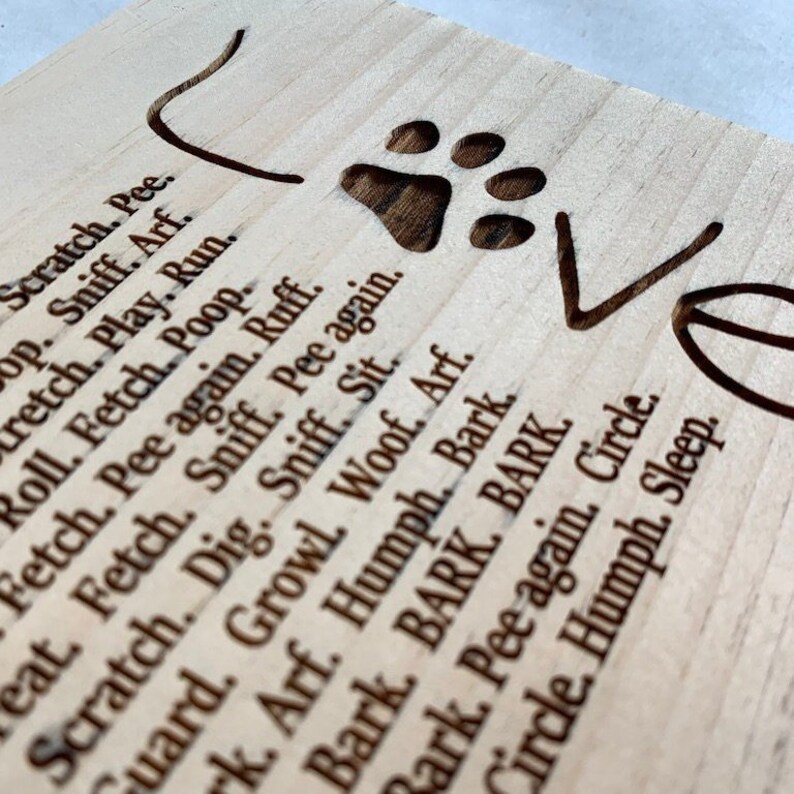 L ve
Scratch. Pee.
Sniff. Arf.
Stretch. Play. Run.
Roll. Fetch. Poop.
Fetch. Pee again. Ruff.
Fetch. Sniff. Pee again.
Scratch. Dig. Sniff. Sit.
Guard. Growl. Woof. Arf.
Arf. Humph. Bark.
Bark. BARK. BARK.
Bark. Pee again. Circle.
Circle. Humph. Sleep.